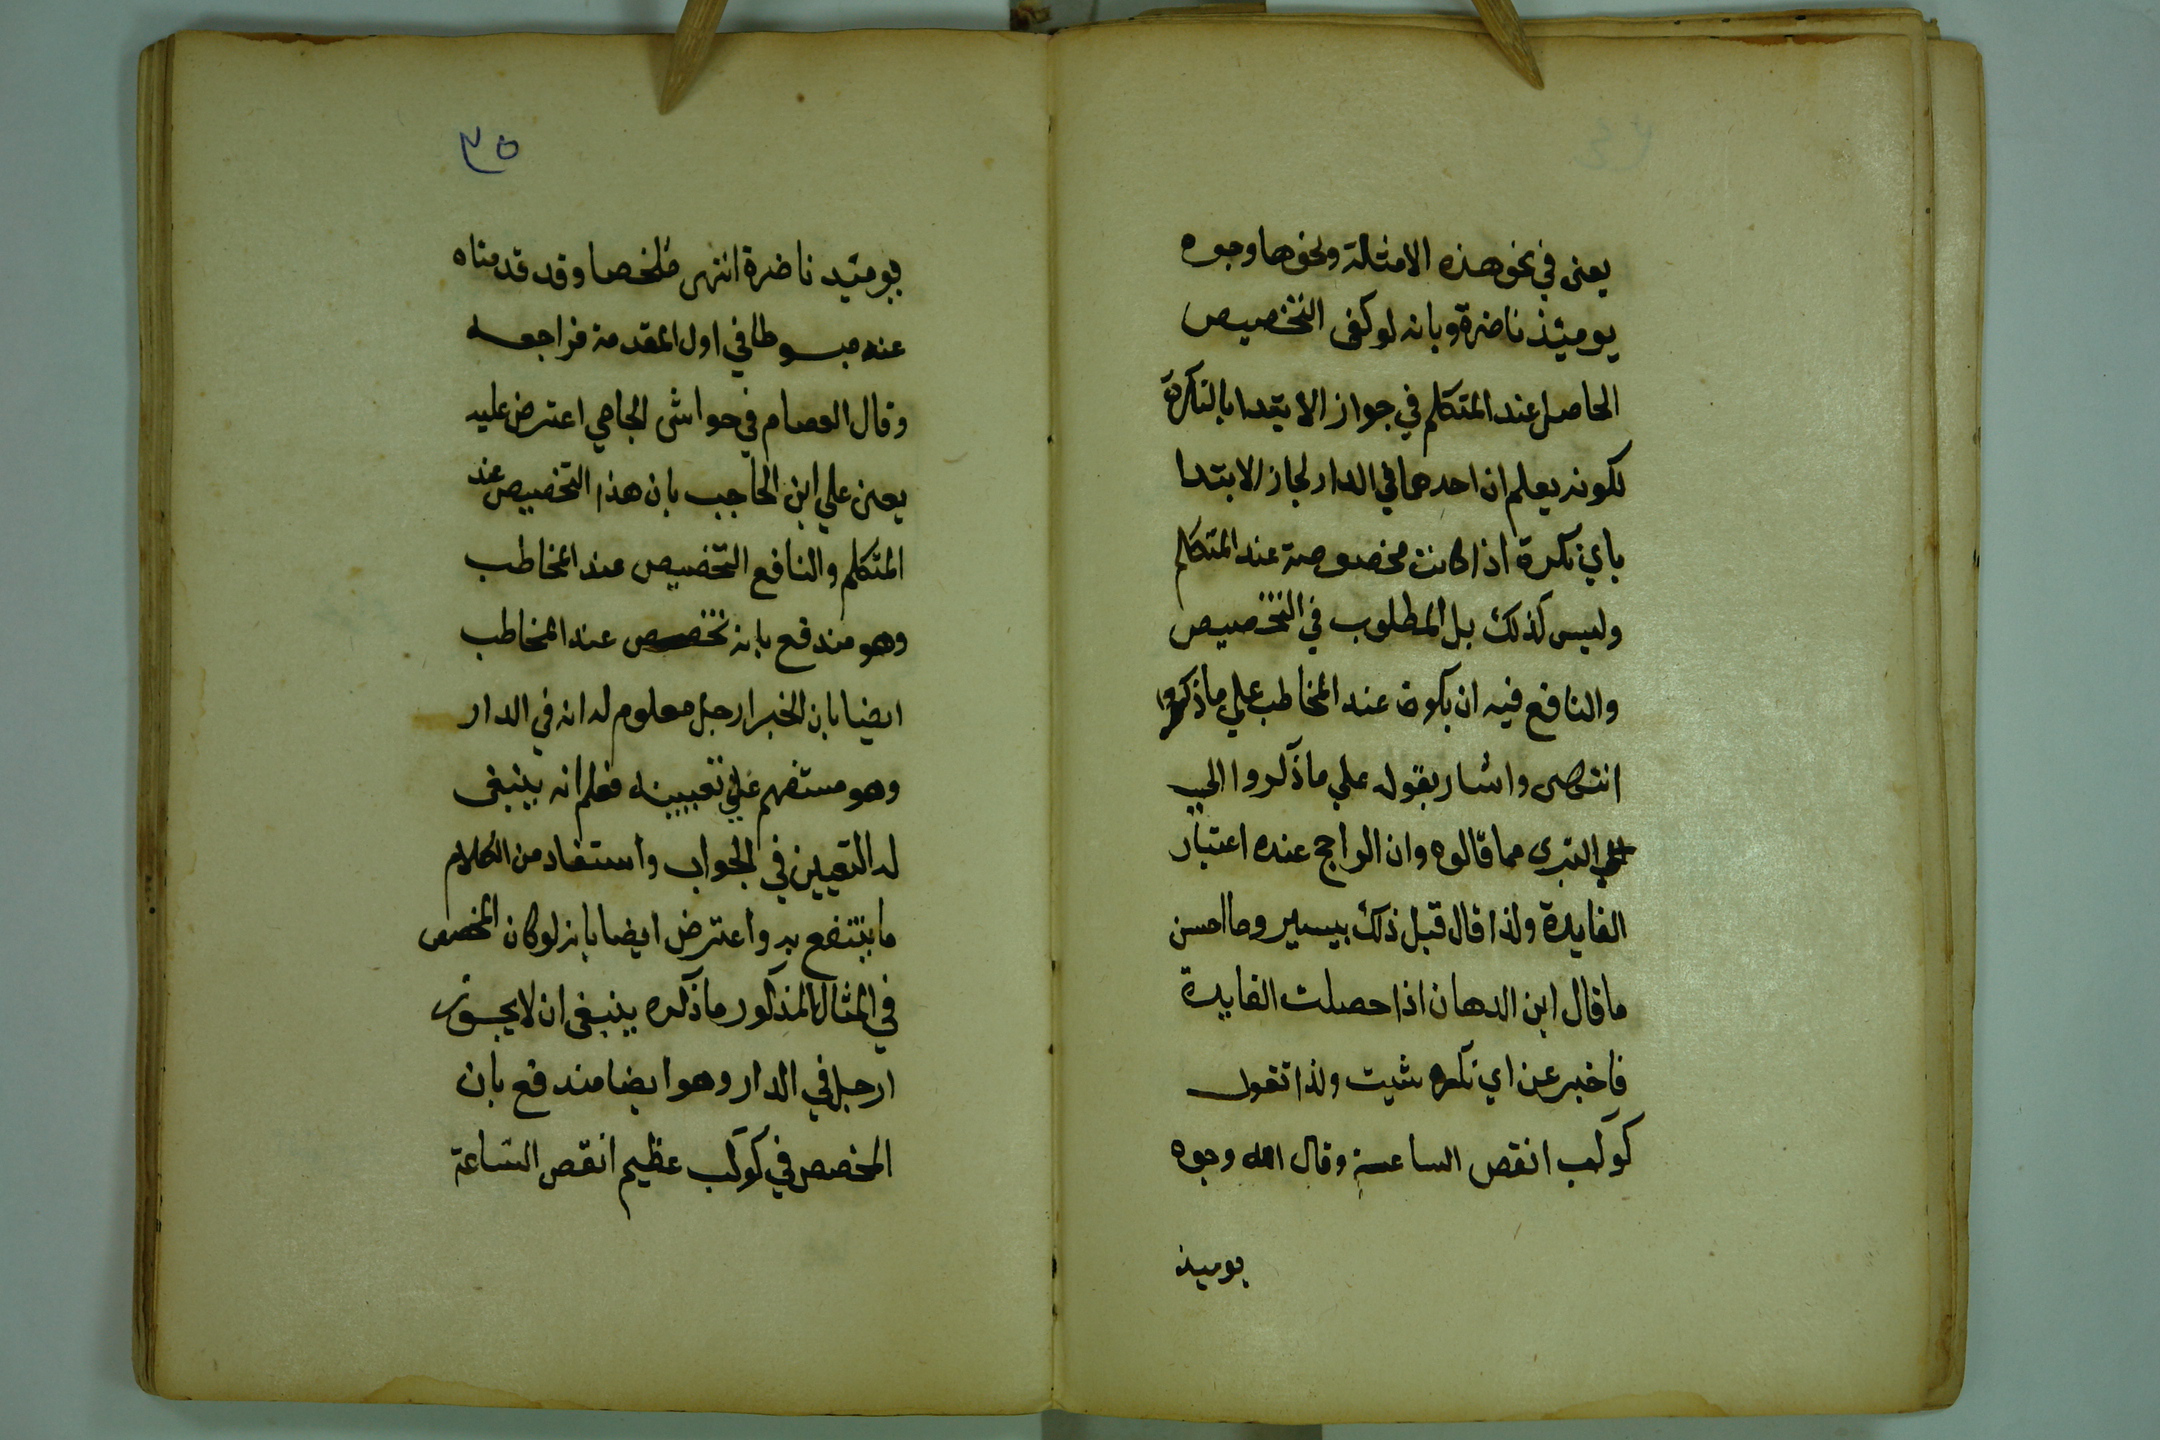 يعنى في نحو هذه الامثلة ونحوها وجوه
يومئذ ناضرة وبانه لو كفى التخصيص
الحاصل عند المتكلم في جواز الابتدا بالنكرة
لكونه يعلم ان احدهما في الدار لجاز الابتدا
باي نكرة اذا كانت مخصوصة عند المتكلم
وليس كذلك بل المطلوب في التخصيص
والنافع فيه ان يكون عند المخاطب علي ما ذكروا
انتهى واشار بقوله علي ما ذكروا الي
التبرى مما قالوه وان الراجح عنده اعتبار
الفايدة ولذا قال قبل ذلك بيسير وما احسن
ما قال ابن الدهان اذا حصلت الفايدة
فاخبر عن اي نكره شيت ولذا تقول
كوكب انقض الساعة وقال الله وجوه
يوميذ
٣٥
يوميئذ ناضرة انتهى ملخصا وقد قدمناه
عنه مبسوطا في اول المقدمة فراجعه
وقال العصام في حواشى الجامي اعترض عليه
يعنى علي ابن الحاجب بان هذا التخصيص عند
المتكلم والنافع التخصيص عند المخاطب
وهو مندفع بانه تخصص عند المخاطب
ايضا بان الخبر ارجل معلوم له انه في الدار
وهو مستفهم علي تعيينه فعلم انه ينبغى
له التعيين في الجواب واستفاد من الكلام
ما ينتفع به واعترض ايضا بانه لو كان المخصص
في المثال المذكور ما ذكره ينبغى ان لا يجوز
ارجل في الدار وهو ايضا مندفع بان
المخصص في كوكب عظيم انقض الساعة